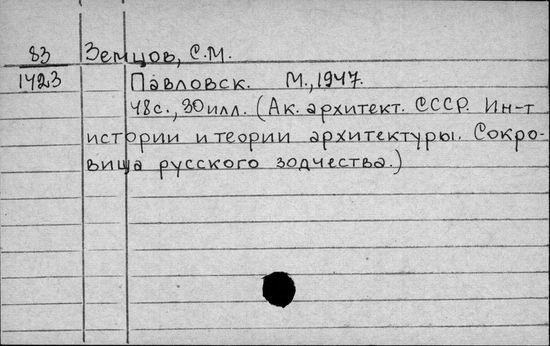 83 Земцов, С.М.
1423 Павловск. М., 1947.
48с., 30 илл. (Ак. архитект. СССР. Ин-т
истории и теории архитектуры. Сокро-
вища русского зодчества.)